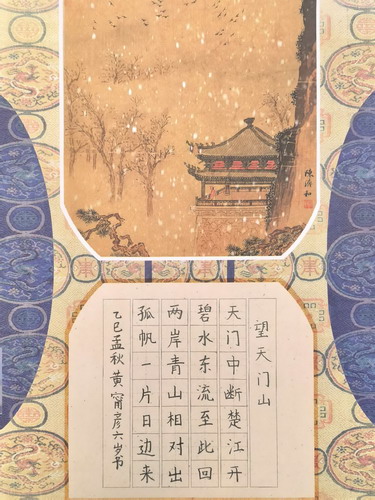 望天门山
天门中断楚江开
碧水东流至此回
两岸青山相对出
孤帆一片日边来
乙巳孟秋黄甯彦六岁书